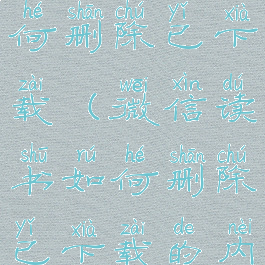 hé shān chú yǐ xià
何删除已下
zài wēi xìn dú
载（微信读
shū rú hé shān chú
书如何删除
yǐ xià zài de nèi
已下载的内